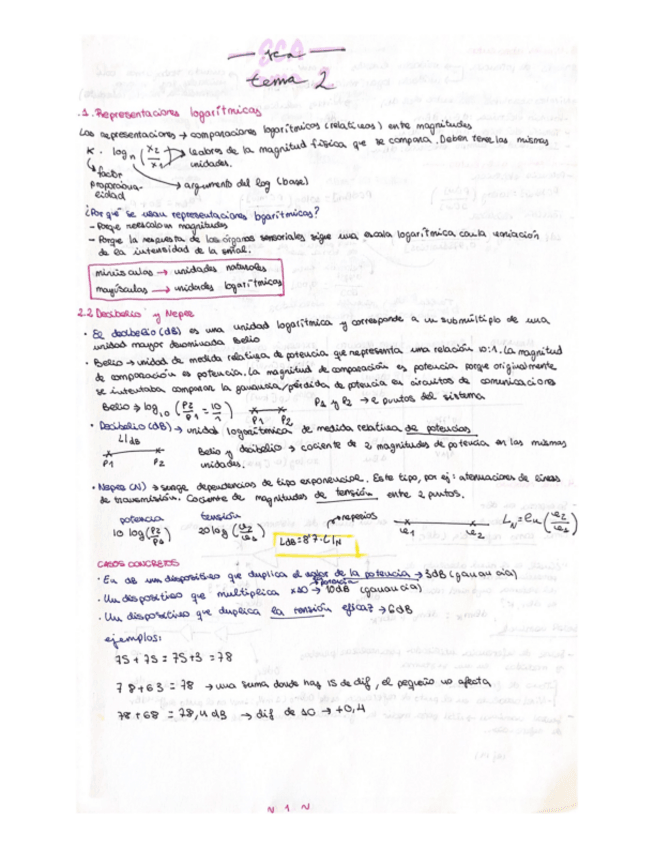 sca
tema 2
.1. Representaciones logarítmicas
Las representaciones → comparaciones logarítmicas (relativas) entre magnitudes
K · log n (x2/x1) → valores de la magnitud física que se compara. Deben tener las mismas
unidades.
factor
proporciona-
lidad
→ argumento del log (base)
¿Por qué se usan representaciones logarítmicas?
- Porque reescalan magnitudes
- Porque la respuesta de los órganos sensoriales sigue una escala logarítmica con la variación
de la intensidad de la señal.
minúsculas → unidades naturales
mayúsculas → unidades logarítmicas
2.2 Decibelio y Neper
· El decibelio (dB) es una unidad logarítmica y corresponde a un submúltiplo de una
unidad mayor denominada Belio
· Belio → unidad de medida relativa de potencia que representa una relación 10:1. La magnitud
de comparación es potencia. La magnitud de comparación es potencia porque originalmente
se intentaba comparar la ganancia/pérdida de potencia en circuitos de comunicaciones
Belio → log10 (P2/P1 = 10/1) P1 P2 P1 y P2 → puntos del sistema
· Decibelio (dB) → unidad logarítmica de medida relativa de potencias
L|dB
P1 P2
Belio y decibelio → cociente de 2 magnitudes de potencia en las mismas
unidades.
· Neper (N) → surge dependencias de tipo exponencial. Este tipo, por ej: atenuaciones de líneas
de transmisión. Cociente de magnitudes de tensión entre 2 puntos.
potencia tensión → neperios
10 log (P2/P1) 20 log (v2/v1) LdB = 8'7 · L|N v1 v2 LN = ln (v2/v1)
CASOS CONCRETOS
· En dB un dispositivo que duplica el valor de la potencia → 3dB (ganancia)
potencia
· Un dispositivo que multiplica x10 → 10dB (ganancia)
· Un dispositivo que duplica la tensión eficaz → 6dB
ejemplos:
75 + 75 = 75+3 = 78
78 + 63 = 78 → una suma donde hay 15 de dif, el pequeño no afecta
78 + 68 = 78,4 dB → dif de 10 → +0,4
~ 1 ~